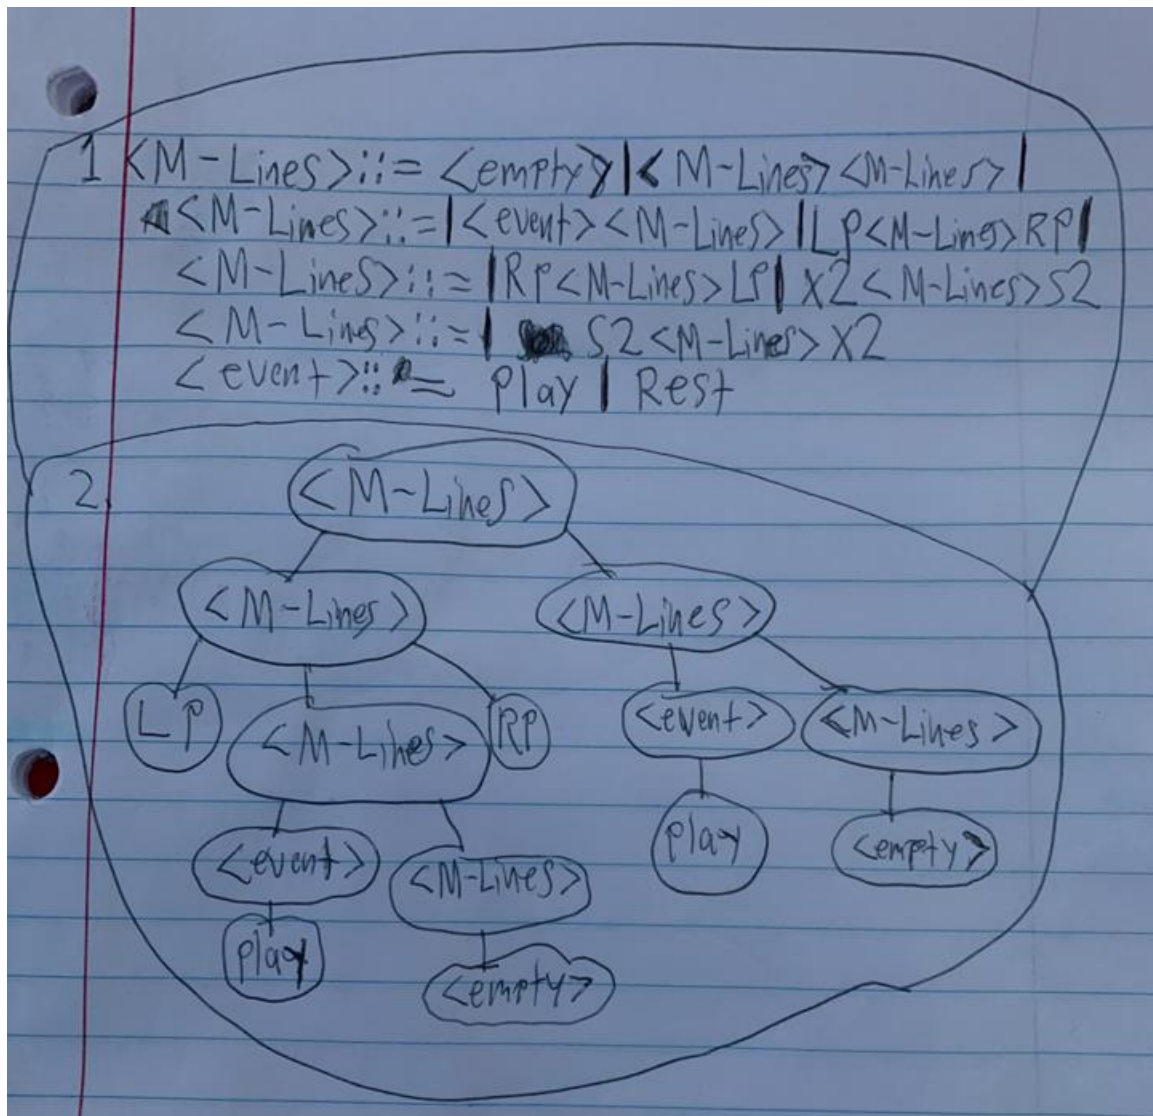 1 <M-Lines>::= <empty>|<M-Lines><M-Lines>|
<M-Lines>::=|<event><M-Lines>|LP<M-Lines>RP|
<M-Lines>::=|RP<M-Lines>LP| X2<M-Lines>S2
<M-Lines>::=| S2<M-Lines>X2
<event>::= Play | Rest
2.
<M-Lines>
<M-Lines> <M-Lines>
LP <M-Lines> RP <event> <M-Lines>
<event> <M-Lines> play <empty>
play <empty>